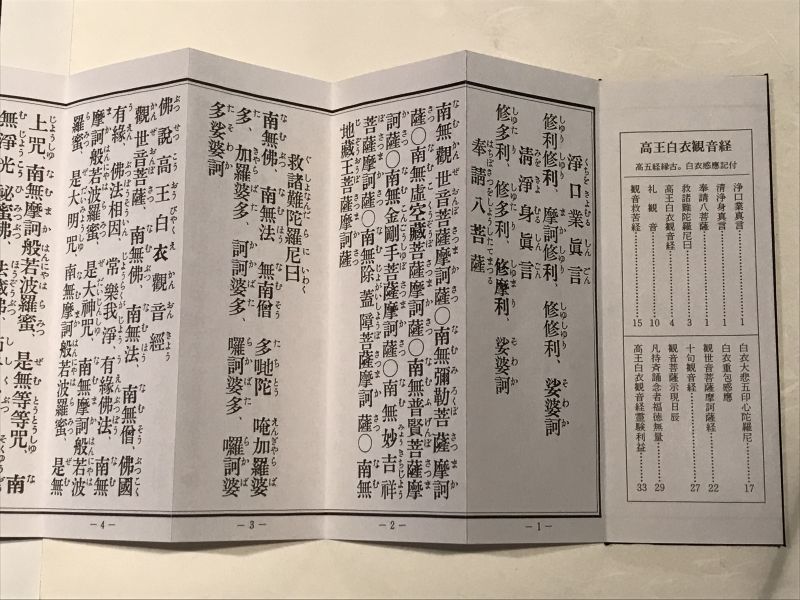 高王白衣観音経
高五経縁古。白衣感應記付
浄口業真言……1
清浄身真言……1
奉請八菩薩……1
救諸難陀羅尼曰……3
高王白衣観音経……4
礼観音……10
観音救苦経……15
白衣大悲五印心陀羅尼……17
白衣重包感應
観世音菩薩摩訶薩経……22
十句観音経……27
観音菩薩示現日辰
凡持斉誦念者福徳無量……29
高王白衣観音経霊験利益……33
淨口業眞言
修利修利、摩訶修利、修修利、娑婆訶
清淨身眞言
修多利、修多利、修摩利、娑婆訶
奉請八菩薩
－1－
南無觀世音菩薩摩訶薩〇南無彌勒菩薩摩訶
薩〇南無虛空藏菩薩摩訶薩〇南無普賢菩薩摩
訶薩〇南無金剛手菩薩摩訶薩〇南無妙吉祥
菩薩摩訶薩〇南無除蓋障菩薩摩訶薩〇南無
地藏王菩薩摩訶薩
－2－
救諸難陀羅尼曰
南無佛、南無法、南無僧、多咃陀、唵加羅婆
多、加羅婆多、訶訶婆多、囉訶婆多、囉訶婆
多娑婆訶
－3－
佛說高王白衣觀音經
觀世音菩薩、南無佛、南無法、南無僧、佛國
有緣、佛法相因、常樂我淨、有緣佛法、南無
摩訶般若波羅蜜、是大神咒、南無摩訶般若波
羅蜜、是大明咒、南無摩訶般若波羅蜜、是無
－4－
上咒、南無摩訶般若波羅蜜、是無等等咒、南
無淨光祕蜜佛、法藏佛、